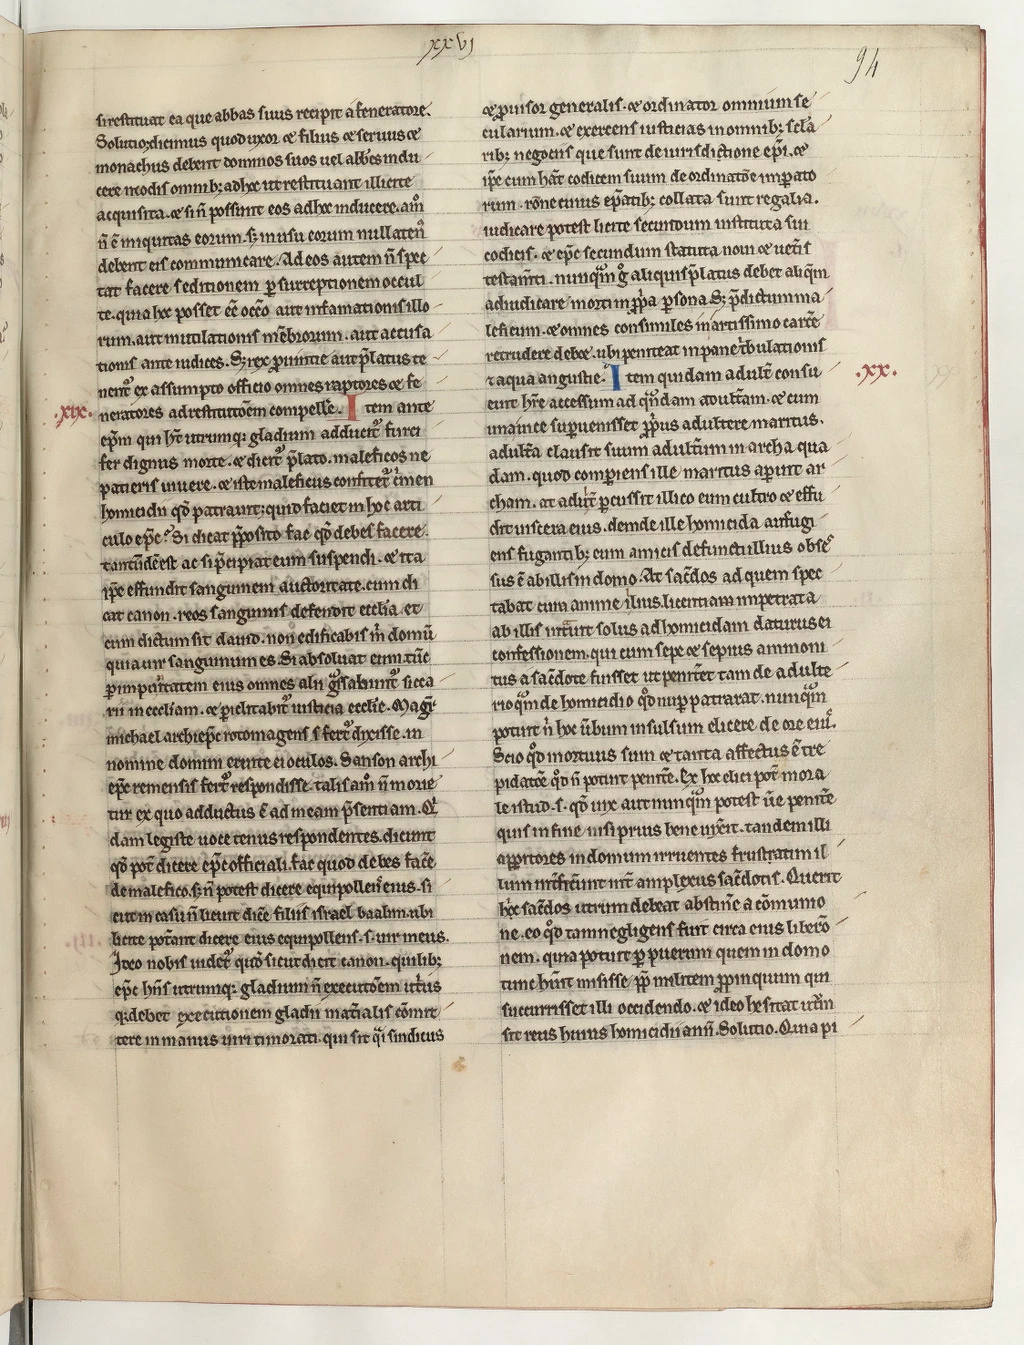 xxvi
94
si restituat ea que abbas suus recipit a feneratore.
Solutio; dicimus quod uxor ⁊ filius ⁊ seruus ⁊
monachus debent dominos suos uel abb̅es indu
cere modis omnib; ad hoc ut restituant illicite
acquisita. ⁊ si n̅ possunt eos ad hoc inducere. am̊
n̅ ē iniquitas eorum. s; in usu eorum nullaten᷒
debent eis communicare. Ad eos autem n̅ spec
tat facere seditionem ꝑ surreptionem occul
te. quia hoc posset ēē occō aut infamationis illo
rum. aut mutilationis mēbrorum. aut accusa
tionis ante iudices. S; rex ꝓuintie aut p̅latus te
nent᷑ ex assumpto officio omnes raptores ⁊ fe
.xix. neratores ad restitutōem compelle᷑. Item ante
ep̅m qui h̅t utrumq; gladium adducit᷑ furci
fer dignus morte. ⁊ dicit᷑ p̅lato. maleficos ne
patieris uiuere. ⁊ iste maleficus confitet᷑ c̍men
homicidii qd̅ patrauit; quid faciet in hoc arti
culo ep̅c? Si dicat p̅posito fac qd̅ debes facere.
tantūdē est ac si p̅cipiat eum suspendi. ⁊ ita
ip̅e effundit sanguinem auctoritate. cum di
cat canon. reos sanguinis defendit ecclia. et
cum dictum sit dauid. non edificabis m̍ domū
quia uir sanguinum es. Si absoluat eum. tūc
ꝑ impunitatem eius omnes alii g̊ssabunt᷑ sicca
rii in eccliam. ⁊ ꝑiclitabit᷑ iusticia ecclie. Magr̅
michael archiep̅c rotomagens̅ s̅ fert᷑ dixisse. in
nomine domini eruite ei oculos. Sanson archi
ep̅c remensis fert᷑ respondisse. talis am̊ n̅ morie
tur ex quo adductus ē ad meam p̅sentiam. Q̍
dam legiste uoce tenus respondentes. dicunt
qd̅ pot̅ dicere ep̅c officiali. fac quod debes facē
de malefico. s; n̅ potest dicere equipollens eius. si
cut in casu n̅ licuit dicē filiis israel baalim. ubi
licite pot̅ant dicere eius equipollens. s. uir meus.
Ideo nobis uidet᷑ quod sicut dicit canon. quilib;
ep̅c hn̅s utrumq; gladium n̅ executōem ut̍us
q; debet executionem gladii mat̅ialis cōmit
tere in manus uiri timorati. qui sit q̍si sindicus
⁊ ꝓuisor generalis. ⁊ ordinator omnium se
cularium. ⁊ exercens iusticias in omnib; scl̅a
rib; negociis que sunt de iurisdictione ep̅i. ⁊
ip̅e cum h̅at codicem suum de ordinatōe imp̅ato
rum. rōne cuius ep̅atib; collata sunt regalia.
iudicare potest licite secundum instituta sui
codicis. ⁊ ep̅c secundum statuta noui ⁊ uet̅is
testam̅ti. nunq̊m g̊ aliquis p̅latus debet aliq̊m
adiudicare morti in ꝓp̍a persona. S; p̅dictum ma
leficum. ⁊ omnes consimiles in artissimo carcē
retrudere debet. ubi peniteat in pane t̍bulationis
⁊ aqua angustie. Item quidam adult̅ consu .xx.
euit hr̅e accessum ad q̊ndam adult̅am. ⁊ cum
una uice sup̅uenisset ꝓp̍us adultere maritus.
adult̅a clausit suum adult̅um in archa qua
dam. quod comperiens ille maritus aperuit ar
cham. at adult̅ percussit illico eum cultro ⁊ effu
dit uiscera eius. deinde ille homicida aufugi
ens fugantib; eum amicis defuncti illius obse
sus ē ab illis in domo. At sac̅dos ad quem spec
tabat cura anime illius. licentiam impetrata
ab illis intuit solus ad homicidam daturus ei
confessionem. qui cum sepe ⁊ sepius ammoni
tus a sac̅dote fuisset ut penitet tam de adulte
rio q̊m de homicidio qd̅ nup̅ patrarat. nunq̊m
potuit n̍ hoc ūbum insulsum elicere de ore ei᷒.
Scio qd̅ mortuus sum ⁊ tanta affectus ē tre
pidatōe qd̅ n̅ potuit penit̅e. Ex hoc elici pot̅ mora
le istud. s. qd̅ uix aut nunq̊m potest ue penit̅e
quis in fine nisi prius bene uix̅it. tandem illi
apparitores in domum irruentes frustratim il
lum int̅fec̅unt int̅ amplexus sac̅dotis. Querit
h̍c sac̅dos utrum debeat abstin̅e a cōmunio
ne. eo qd̅ tam negligens fuit circa eius libero
nem. quia potuit ꝑ puerum quem in domo
tunc h̅uit misisse ꝓpt̅ militem ꝓpinquum qui
succurrisset illi occidendo. ⁊ ideo hesitat utr̅m
sit reus huius homicidii an n̅. Solutio. Quia pi